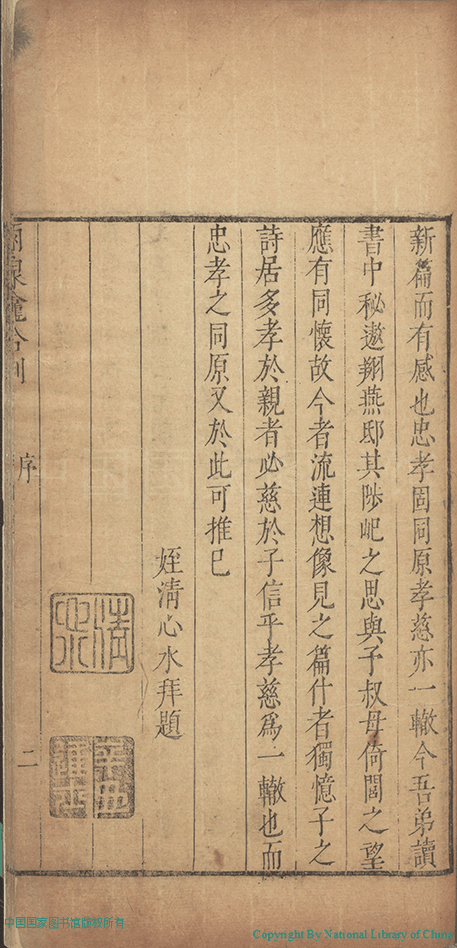 新篇而有感也忠孝固同原孝慈亦一轍今吾弟讀
書中秘遨翔燕邸其陟屺之思與子叔母倚閭之望
應有同懷故今者流連想像見之篇什者獨憶子之
詩居多孝於親者必慈於子信乎孝慈爲一轍也而
忠孝之同原又於此可推已
姪清心水拜題
清心水
雨泉龕合刻
序
二
中国国家图书馆版权所有
Copyright By National Library of China